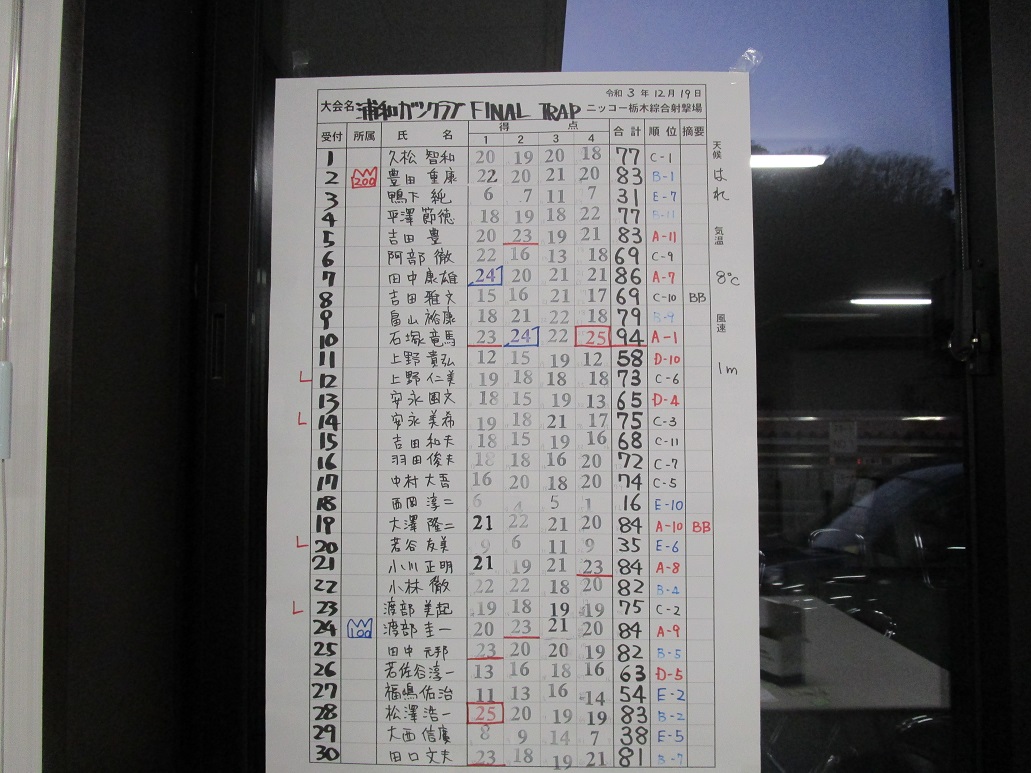 令和 3 年 12 月 19 日
大会名 浦和ガンクラブ FINAL TRAP ニッコー栃木綜合射撃場
受付 所属 氏 名 得 点 合計 順位 摘要
1 2 3 4
1 久松 智和 20 19 20 18 77 C-1
2 200 豊田 重康 22 20 21 20 83 B-1
3 鴨下 純 6 7 11 7 31 E-7
4 平澤 節徳 18 19 18 22 77 B-11
5 吉田 豊 20 23 19 21 83 A-11
6 阿部 徹 22 16 13 18 69 C-9
7 田中 康雄 24 20 21 21 86 A-7
8 吉田 雅文 15 16 21 17 69 C-10 BB
9 畠山 裕康 18 21 22 18 79 B-9
10 石塚 竜馬 23 24 22 25 94 A-1
11 上野 貴弘 12 15 19 12 58 D-10
L 12 上野 仁美 19 18 18 18 73 C-6
13 安永 国文 18 15 19 13 65 D-4
L 14 安永 美希 19 18 21 17 75 C-3
15 吉田 和夫 18 15 19 16 68 C-11
16 羽田 俊夫 18 18 16 20 72 C-7
17 中村 大吾 16 20 18 20 74 C-5
18 西岡 淳二 6 4 5 1 16 E-10
19 大澤 隆二 21 22 21 20 84 A-10 BB
L 20 若谷 友美 9 6 11 9 35 E-6
21 小川 正明 21 19 21 23 84 A-8
22 小林 徹 22 22 18 20 82 B-4
L 23 渡部 美起 19 18 19 19 75 C-2
24 100 渡部 圭一 20 23 21 20 84 A-9
25 田中 元邦 23 20 20 19 82 B-5
26 若佐谷 淳一 13 16 18 16 63 D-5
27 福嶋 佑治 11 13 16 14 54 E-2
28 松澤 浩一 25 20 19 19 83 B-2
29 大西 信広 8 9 14 7 38 E-5
30 田口 文夫 23 18 19 21 81 B-7
天候
はれ
気温
8℃
風速
1m